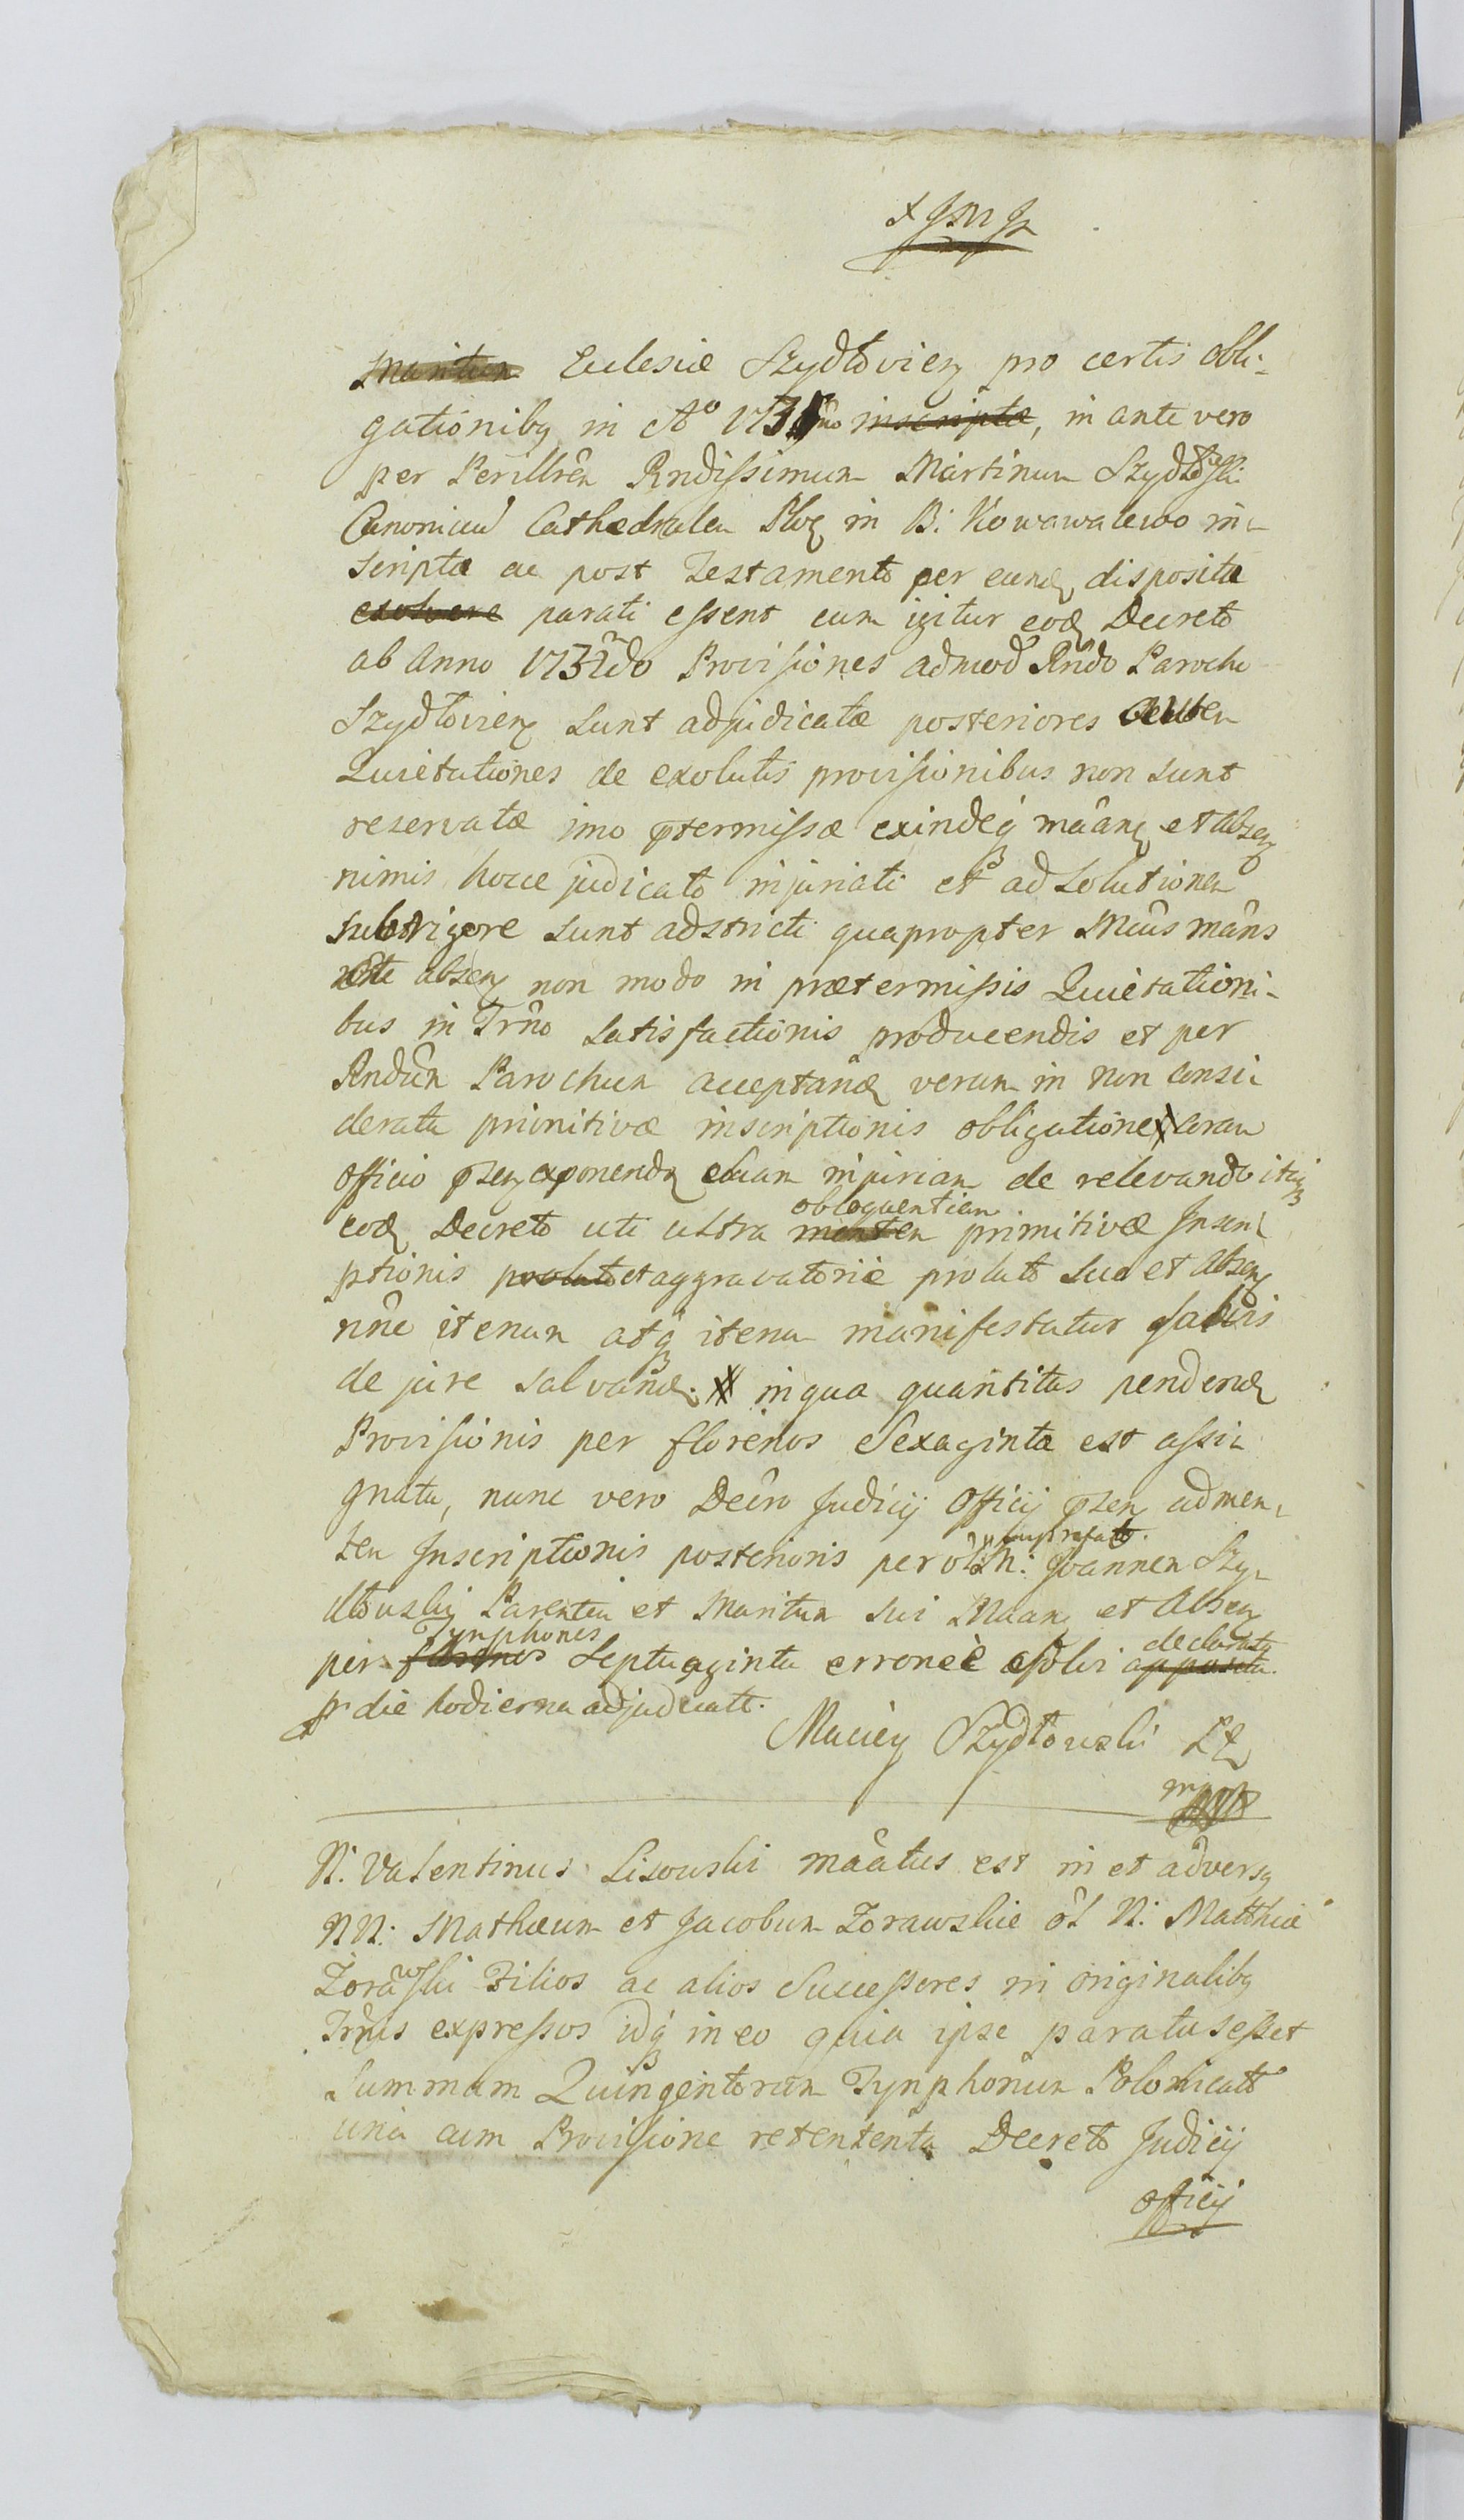 Maritum Ecclesiæ Szydłovien pro certis obli-
gationibg in Aº 173 inscripta, in ante vero
per Perillrên Rndissimum Martinum Szydłowski
Canonicum Cathedralem Ploc in B: Kowawalewo in-
scripta ac post Testamento per eund disposita
exolvere parati essent cum igitur eod Decreto
ab Anno 1732do Provisiones admod Rndo Parocho
Szydłovien sunt adjudicatæ posteriores autem
Quietationes de exolutis provisionibus non sunt
reservatæ imo ptermissæ exindeq maâns et absen
nimis hocce judicato injuriati et ad solutionem
sub rigore sunt adstricti quapropter mâns
absen non modo in prætermissis Quietationi-
bus in Trno satisfactionis producendis et per
Rndum Parochum acceptand verum in non consi-
derata primitivæ inscriptionis obligatione coram
officio psen exponend injuriam de relevando itaq
obloquentiam
eod Decreto uti ultra mentem primitivæ Inscri-
ptionis prolato et aggravatorie prolato suo et absen
nne iterum atq iterum manifestatur salvis
de jure salvand. in qua quantitas pendend
Provisionis per florenos Sexaginta est assi-
gnata, nunc vero Decro Judicij Officij psen ad men-
tem Inscriptionis posterioris per ol N: Joannem Szy-
dłowski Parentem et Maritum sui Maan et Absen
Tynphones declarata
per florenos Septuaginta erroneè exolvi apposita
pr die hodierna adjudicatt.
Maciey Szydłowski
mpp
N. Valentinus Lisowski maâtus est in et adversg
NN: Mathæum et Jacobum Zorawskie ôl N: Matthiæ
Zorawski Filios ac alios Successores in originalibg
Trnis expressos idq in eo quia ipse paratus esset
Summam Quingentorum Tynphonum Polonicatt
unà cum Provisione retententa Decreto Judicij
officij